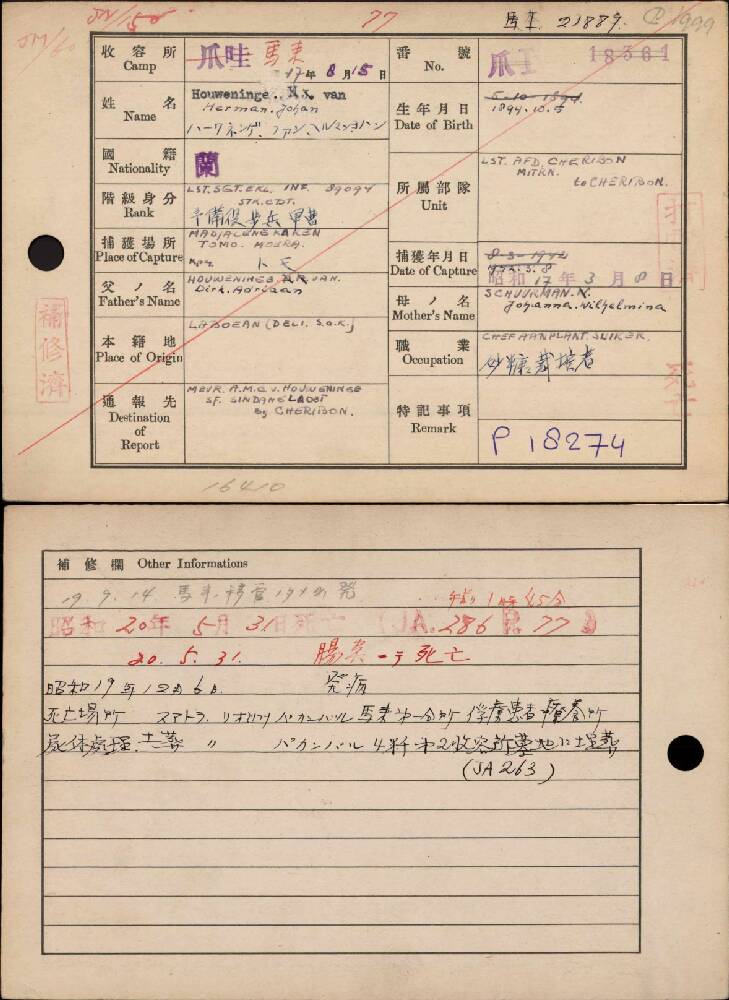 77
馬王 21889.
1999
收容所 Camp
爪哇 馬来
17年 8月15日
番號 No.
爪王 18361
姓名 Name
Houweninge.. H.J. van
Herman. Johan
ハーワネンゲ、ファン、ヘルマンヨハン
生年月日 Date of Birth
5-10-1894
1894.10.5
國籍 Nationality
蘭
階級身分 Rank
LST. SGT. EKL. INF. 89094
STR. CDT.
予備役歩兵 軍曹
所屬部隊 Unit
LST. AFD. CHERIBON
MITRN.
to CHERIBON.
捕獲場所 Place of Capture
MADJALENGKA EN
TOMO. MOERA.
トモ
捕獲年月日 Date of Capture
8-3-1942
1942.3.8
昭和17年3月8日
父ノ名 Father's Name
HOUWENINGE VAN.
Dirk. Adriaan
母ノ名 Mother's Name
SCHUURMAN.
Johanna. Wilhelmina
本籍地 Place of Origin
LABOEAN (DELI. S.O.K.)
職業 Occupation
CHEF AANPLANT. SUIKER.
砂糖栽培者
通報先 Destination of Report
MEVR. A.M.C. v. HOUWENINGE
SF. SINDANGLAOET
by CHERIBON.
特記事項 Remark
P 18274
補修濟
死亡
16410
補修欄 Other Informations
19. 9. 14. 馬来移管
午前1時45分
昭和20年5月31日死亡 (JA. 286 P. 77)
20. 5. 31. 腸炎ニテ死亡
昭和19年12月6日 発病
死亡場所 スマトラ、リオ州パカンバル馬来第一分所俘虜患者療養所
屍体處理 土葬 〃 パカンバル4粁第2收容所墓地に埋葬
(JA 263)